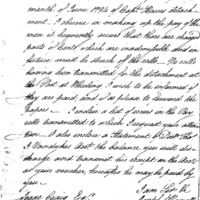 month of June 1794 of Capt. Howes detach-
ment. I observe in making up the pay of the
men it frequently occurs that there are charged
parts of Cents which are inadmissible and on
future must be struck off the rolls. No rolls
having been transmitted for the detachment at
the Post at Wheeling I wish to be informed if
they are paid, and if so please to forward the
papers. I enclose a list of errors on the Pay
rolls transmitted to which I request your atten-
tion. I also enclose a Statement of Lieut. Jno.
A. Vanduzer Acct. the balance you will dis-
charge and transmit his receipt on the Acct.
as your voucher, he may be paid by
you.
I am Sir &c
Isaac Craig Esqr.